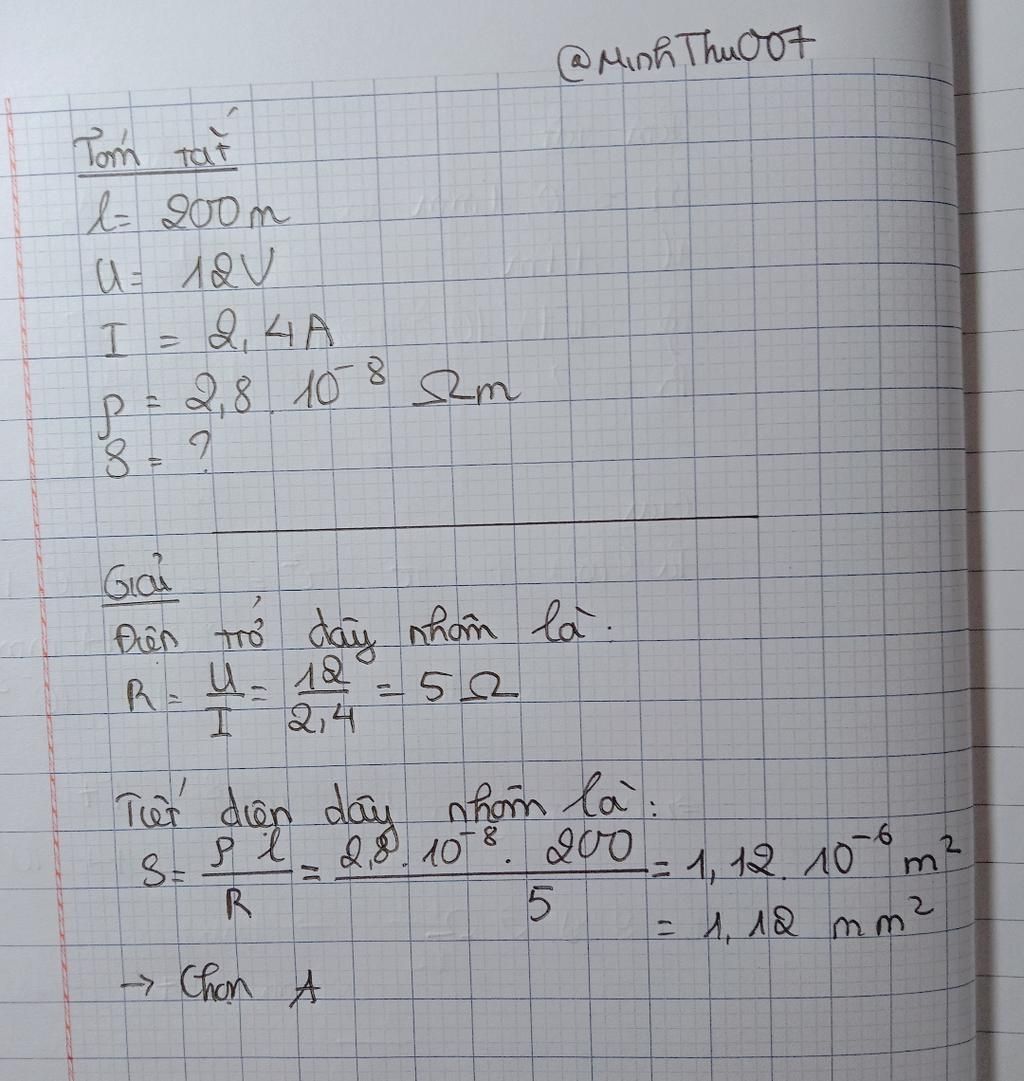 @MinhThu007
Tóm tắt
l = 200m
U = 12V
I = 2,4A
ρ = 2,8. 10⁻⁸ Ωm
S = ?
Giải
Điện trở dây nhôm là:
R = U/I = 12/2,4 = 5Ω
Tiết diện dây nhôm là:
S = ρl/R = 2,8. 10⁻⁸. 200/5 = 1,12. 10⁻⁶ m²
= 1,12 mm²
→ Chọn A